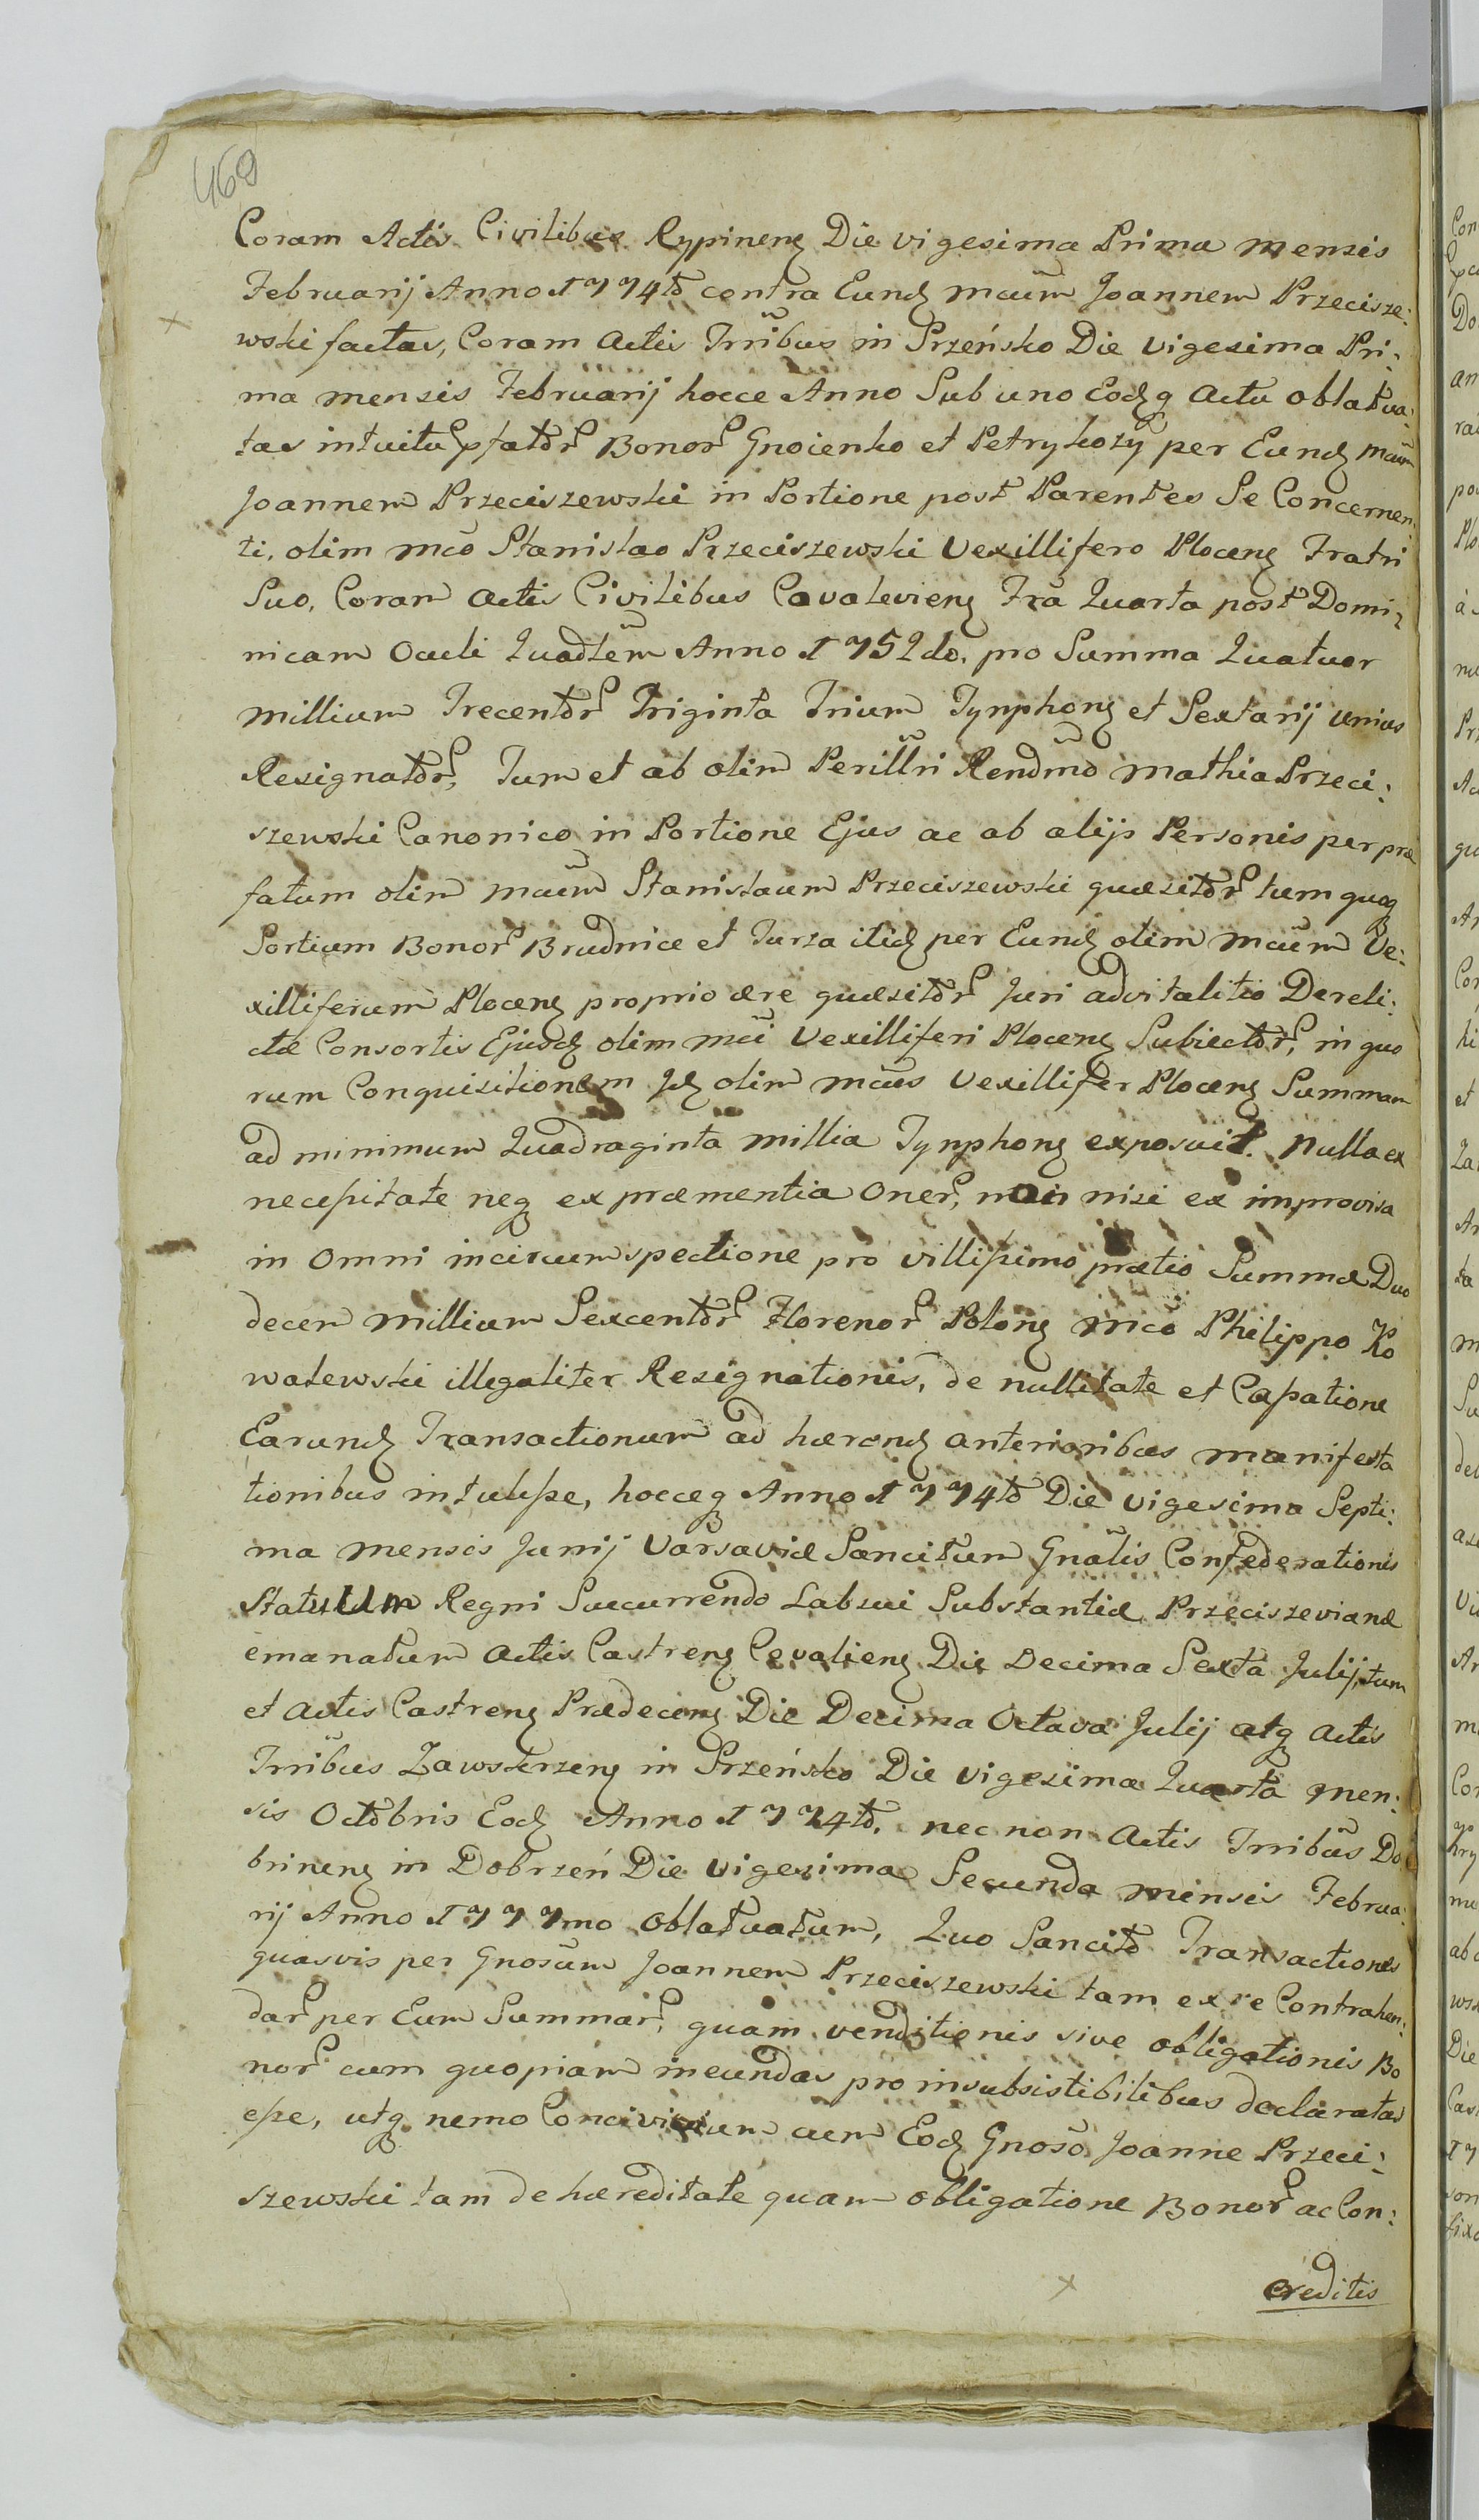 469
Coram Actis Civilibus Rypineng Die vigesima Prima mensis
Februarij Anno 1774tō contra Eund mcum Joannem Przecisze:
wski factas, Coram actis Trribus in Srzeńsko Die vigesima Pri:
ma mensis Februarij hocce Anno Sub uno Eodq actu oblatua:
tas intuitu pfator Bonor Gnoienko et Petrykozy per Eund mcum
Joannem Przeciszewski in Portione post Parentes Se Concernen:
ti, olim mco Stanislao Przeciszewski Vexillifero Ploceng Fratri
Suo, Coram actis Civilibus Cavalevieng Fra Quarta post Domi:
nicam Oculi Quadlem Anno 1752do. pro Summa Quatuor
millium Trecentor Triginta Trium Tynphong et Sextarij unius
Resignator, Tum et ab olim Perillri Rendmo Mathia Przeci:
szewski Canonico in Portione Ejus ac ab alijs Personis per præ
fatum olim mcum Stanislaum Przeciszewski quæsitor tum quoq
Sortium Bonor Brudnice et Turza itid per Eund olim mcum Ve:
xilliferum Ploceng proprio ære quæsitor Juri advitalitio Dereli:
ctæ Consortis Ejusd olim mci Vexilliferi Ploceng Subiector, in quo
rum Conquisitionem Id olim mcus Vexillifer Ploceng Summam
ad minimum Quadraginta millia Tynphong exposuit. Nulla ex
necessitate neq ex præmentia Oner, non nisi ex improvisa
in Omni incircumspectione pro villissimo prætio Summæ Duo
decem millium Sexcentor Florenor Polong mco Philippo Ko
walewski illegaliter Resignationis, de nullitate et Cassatione
Earund Transactionum ad hærend anterioribus manifesta
tionibus intulisse, hocceq Anno 1774tō Die vigesima Septi:
ma mensis Junij Varsaviæ Sancitum Gnalis Confederationis
Statuum Regni Succurrendo Labsui Substantiæ Przeciszevianæ
emanatum actis Castreng Cevalieng Die Decima Sexta Julij, tum
et actis Castreng Prædeceng Die Decima Octava Julij atq actis
Trribus Zawskrzeng in Srzeńsko Die vigesima Quarta men:
sis Octobris Eod Anno 1774tō. nec non actis Trribus Do
brineng in Dobrzeń Die vigesima Secunda mensis Februa:
rij Anno 1777mo Oblatuatum, Quo Sancito Transactiones
quasvis per Gnosum Joannem Przeciszewski tam ex re Contrahen:
dar per Eum Summar, quam venditionis sive obligationis Bo
nor cum quopiam ineundas pro insubsistibilibus declaratas
esse, utq nemo Concivium cum Eod Gnoso Joanne Przeci:
szewski tam de hæreditate quam obligatione Bonor ac Con:
creditis